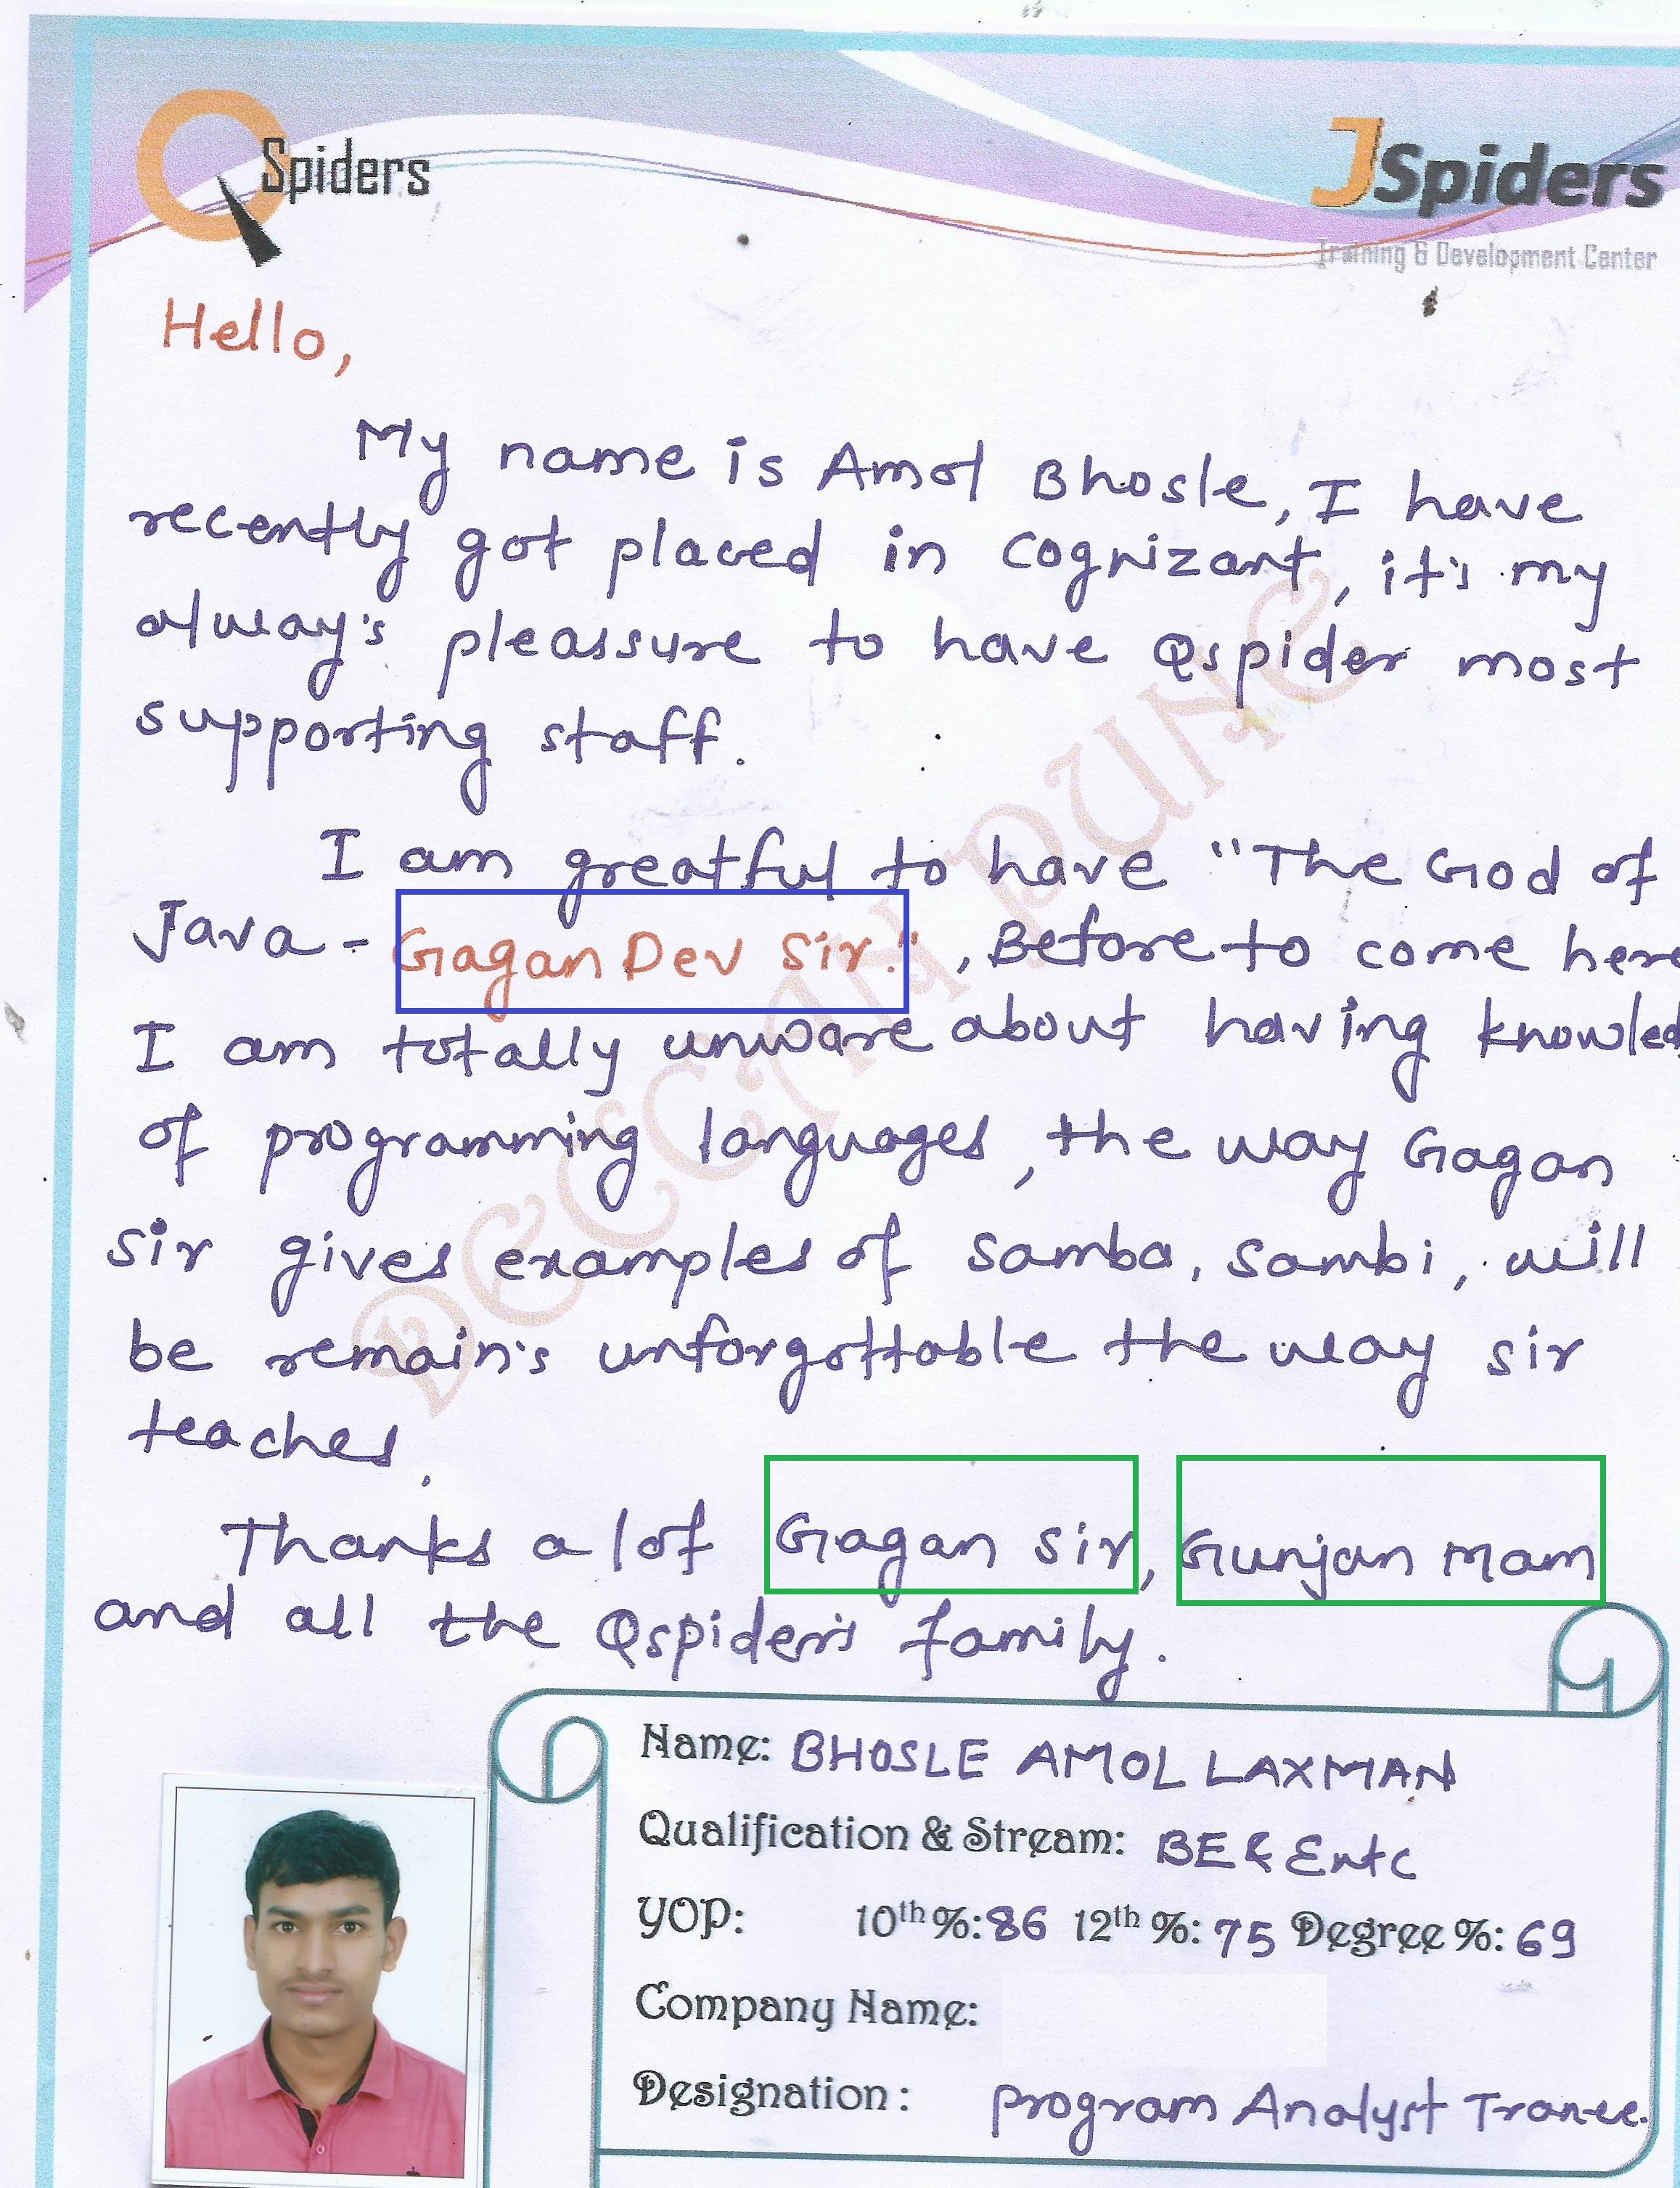 QSpiders
JSpiders
Training & Development Center
Hello,
My name is Amol Bhosle, I have
recently got placed in cognizant, it's my
alway's pleassure to have Qspider most
supporting staff.
I am greatful to have "The God of
Java - Gagan Dev Sir.", Before to come here
I am totally unware about having knowled
of programming languages, the way Gagan
sir gives examples of samba, sambi, will
be remain's unforgottable the way sir
teaches.
Thanks a lof Gagan Sir, Gunjan Mam
and all the Qspider's family.
DECCAN PUNE
Name: BHOSLE AMOL LAXMAN
Qualification & Stream: BE & Entc
YOP: 10th %: 86 12th %: 75 Degree %: 69
Company Name:
Designation: Program Analyst Tranee.